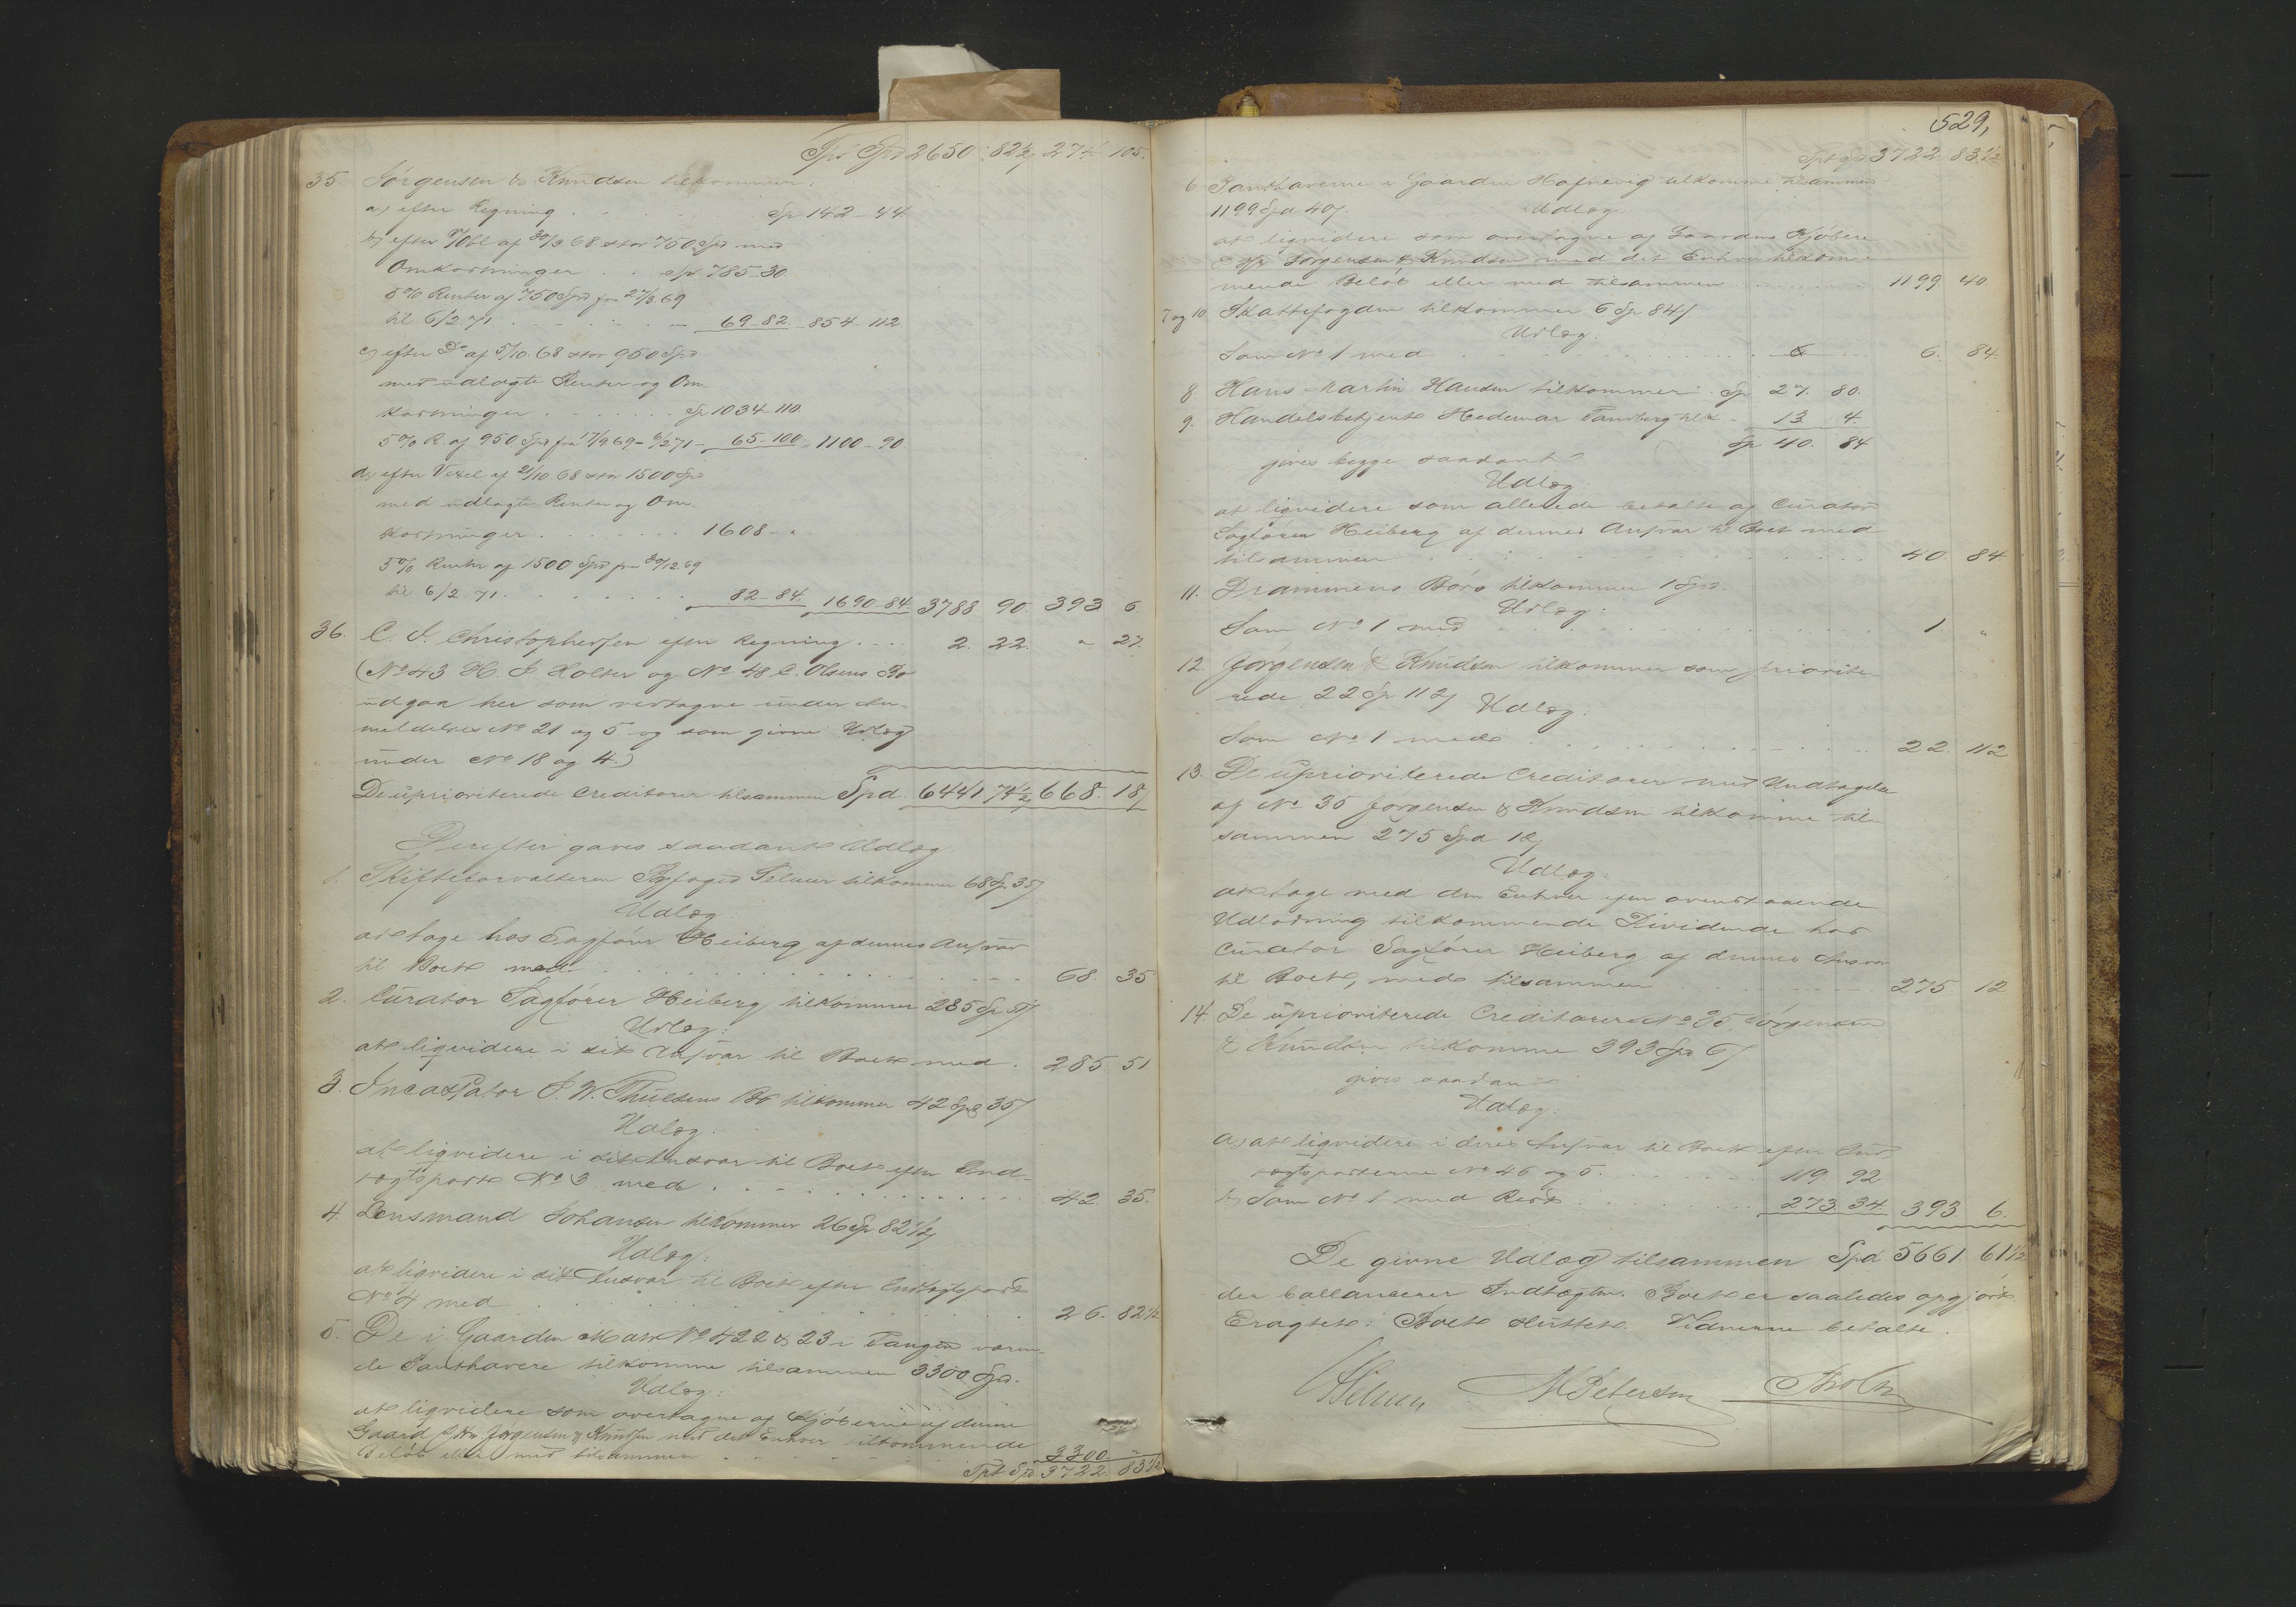 Tpt Spd 2650. 82½ 274. 105.
35. Jørgensen & Knudsen tilkommer:
a, efter Regning . . . Sp 142-44
b, efter Obl af 30/3 68 stor 750 Spd med
Omkostninger . . Sp 785-30
5% Renter af 750 Spd fra 27/3 69
til 6/2 71 . . . . . 69-82. 854-112
c, efter Do af 5/10. 68 stor 950 Spd
med udlagte Renter og Om-
kostninger . . . . . . Sp 1034-110.
5% R. af 950 Spd fra 17/9 69 - 6/2 71 - 65-100 1100-90
d, efter Vexel af 21/10. 68 stor 1500 Spd
med udlagte Renter og Om-
kostninger . . . . . . . 1608-"
5% Renter af 1500 Spd fra 30/12. 69
til 6/2. 71. . . . . . . . 82-84. 1690-84 3788 90. 393 6
36. C. Christophersen efter Regning . . . . 2. 22. " 27.
(No 43 H. Holter og No 48 C. Olsens Bo
udgaa her som vedtagne under An-
meldelses No 21 og 5 og som givne Udlæg
under No 18 og 4.)
De uprioriterede Creditorer tilsammen Spd. 6441 74½ 668. 18
Derefter gaves saadant Udlæg
1. Skifteforvalteren Byfoged Selmer tilkommer 68 Sp 35
Udlæg
at tage hos Sagfører Heiberg af dennes Ansvar
til Boet med . . . . . . . . . . . 68. 35
2. Curator Sagfører Heiberg tilkommer 285 Sp 51
Udlæg:
at liqvidere i sit Ansvar til Boet med . 285. 51
3. Incassator Thuesens Bo tilkommer 42 Spd 35
Udlæg:
at liqvidere i sit Ansvar til Boet efter Ind-
tægtspost No 3 med . . . . . . . . . . 42 35.
4. Lensmand Johansen tilkommer 26 Sp 82½
Udlæg:
at liqvidere i sit Ansvar til Boet efter Indtægtspost
No 4 med . . . . . . . . . . . 26. 82½
5. De i Gaarden Matr No 422 & 23 i Tangen væren-
de Panthavere tilkomme tilsammen 3300 Spd.
Udlæg:
at liqvidere som overtagne af Kjøberne af denne
Gaard Jørgensen & Knudsen med det Enhver tilkommende
Beløb eller med tilsammen . . . . . . 3300 "
Tpt Spd 3722. 83½
529,
Tpt Spd 3722 83½
6 Panthaverne i Gaarden Hafnevig tilkomme tilsammen
1199 Spd 40
Udlæg
at liqvidere som overtagne af Gaardens Kjøbere
Jørgensen & Knudsen med det Enhver tilkom-
mende Beløb eller med tilsammen . . . . 1199 40.
7 og 10 Skattefogden tilkommer 6 Sp 84
Udlæg:
Som No 1 med . . . . . . . . 6. 84.
8. Hans Martin Hansen tilkommer . Sp 27. 80.
9. Handelsbetjent Hedemar Tamberg tilk. 13 4.
Sp 40. 84
gives begge saadant
Udlæg:
at liqvidere som allerede betalte af Curator
Sagfører Heiberg af dennes Ansvar til Boet med
tilsammen . . . . . . . . . . 40. 84.
11. Drammens Børs tilkommer 1 Spd.
Udlæg:
Som No 1 med . . . . . . . . . 1. "
12. Jørgensen & Knudsen tilkommer som priorite-
rede 22 Sp 112
Udlæg:
Som No 1 med . . . . . . . . . 22. 112
13. De uprioriterede Creditorer med Undtagelse
af No 35 Jørgensen & Knudsen tilkomme til-
sammen 275 Spd 12
Udlæg:
at tage med den Enhver efter ovenstaaende
Udlodning tilkommende Dividende hos
Curator Sagfører Heiberg af dennes Ansvar
til Boet, med tilsammen . . . . . . 275. 12
14 De uprioriterede Creditorer No 35 Jørgensen
& Knudsen tilkomme 393 Spd 6
gives saadant
Udlæg:
a, at liqvidere i deres Ansvar til Boet efter Ind-
tægtsposterne No 46 og 5. . . . . . 119. 92
b, Som No 1 med Rest . . . . . . 273. 34. 393 6.
De givne Udlæg tilsammen Spd 5661. 61½
der ballancerer Indtægten. Boet er saaledes opgjort
Eragtet: Boet sluttet. Vidnerne betalte.
Selmer M Petersen